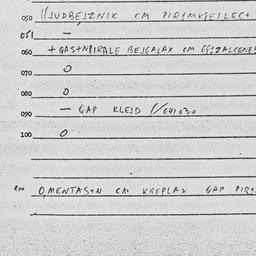 050 //JUDBEJZNIK CM PIRIMKIEJLEC+
051 —
060 + GAS+NPIRALE BEJGALAX CM
070 0
080 0
090 — GAP KLEJD //041030
100 0
O,MENTAS+N CM KREPLAX GAP PIR+